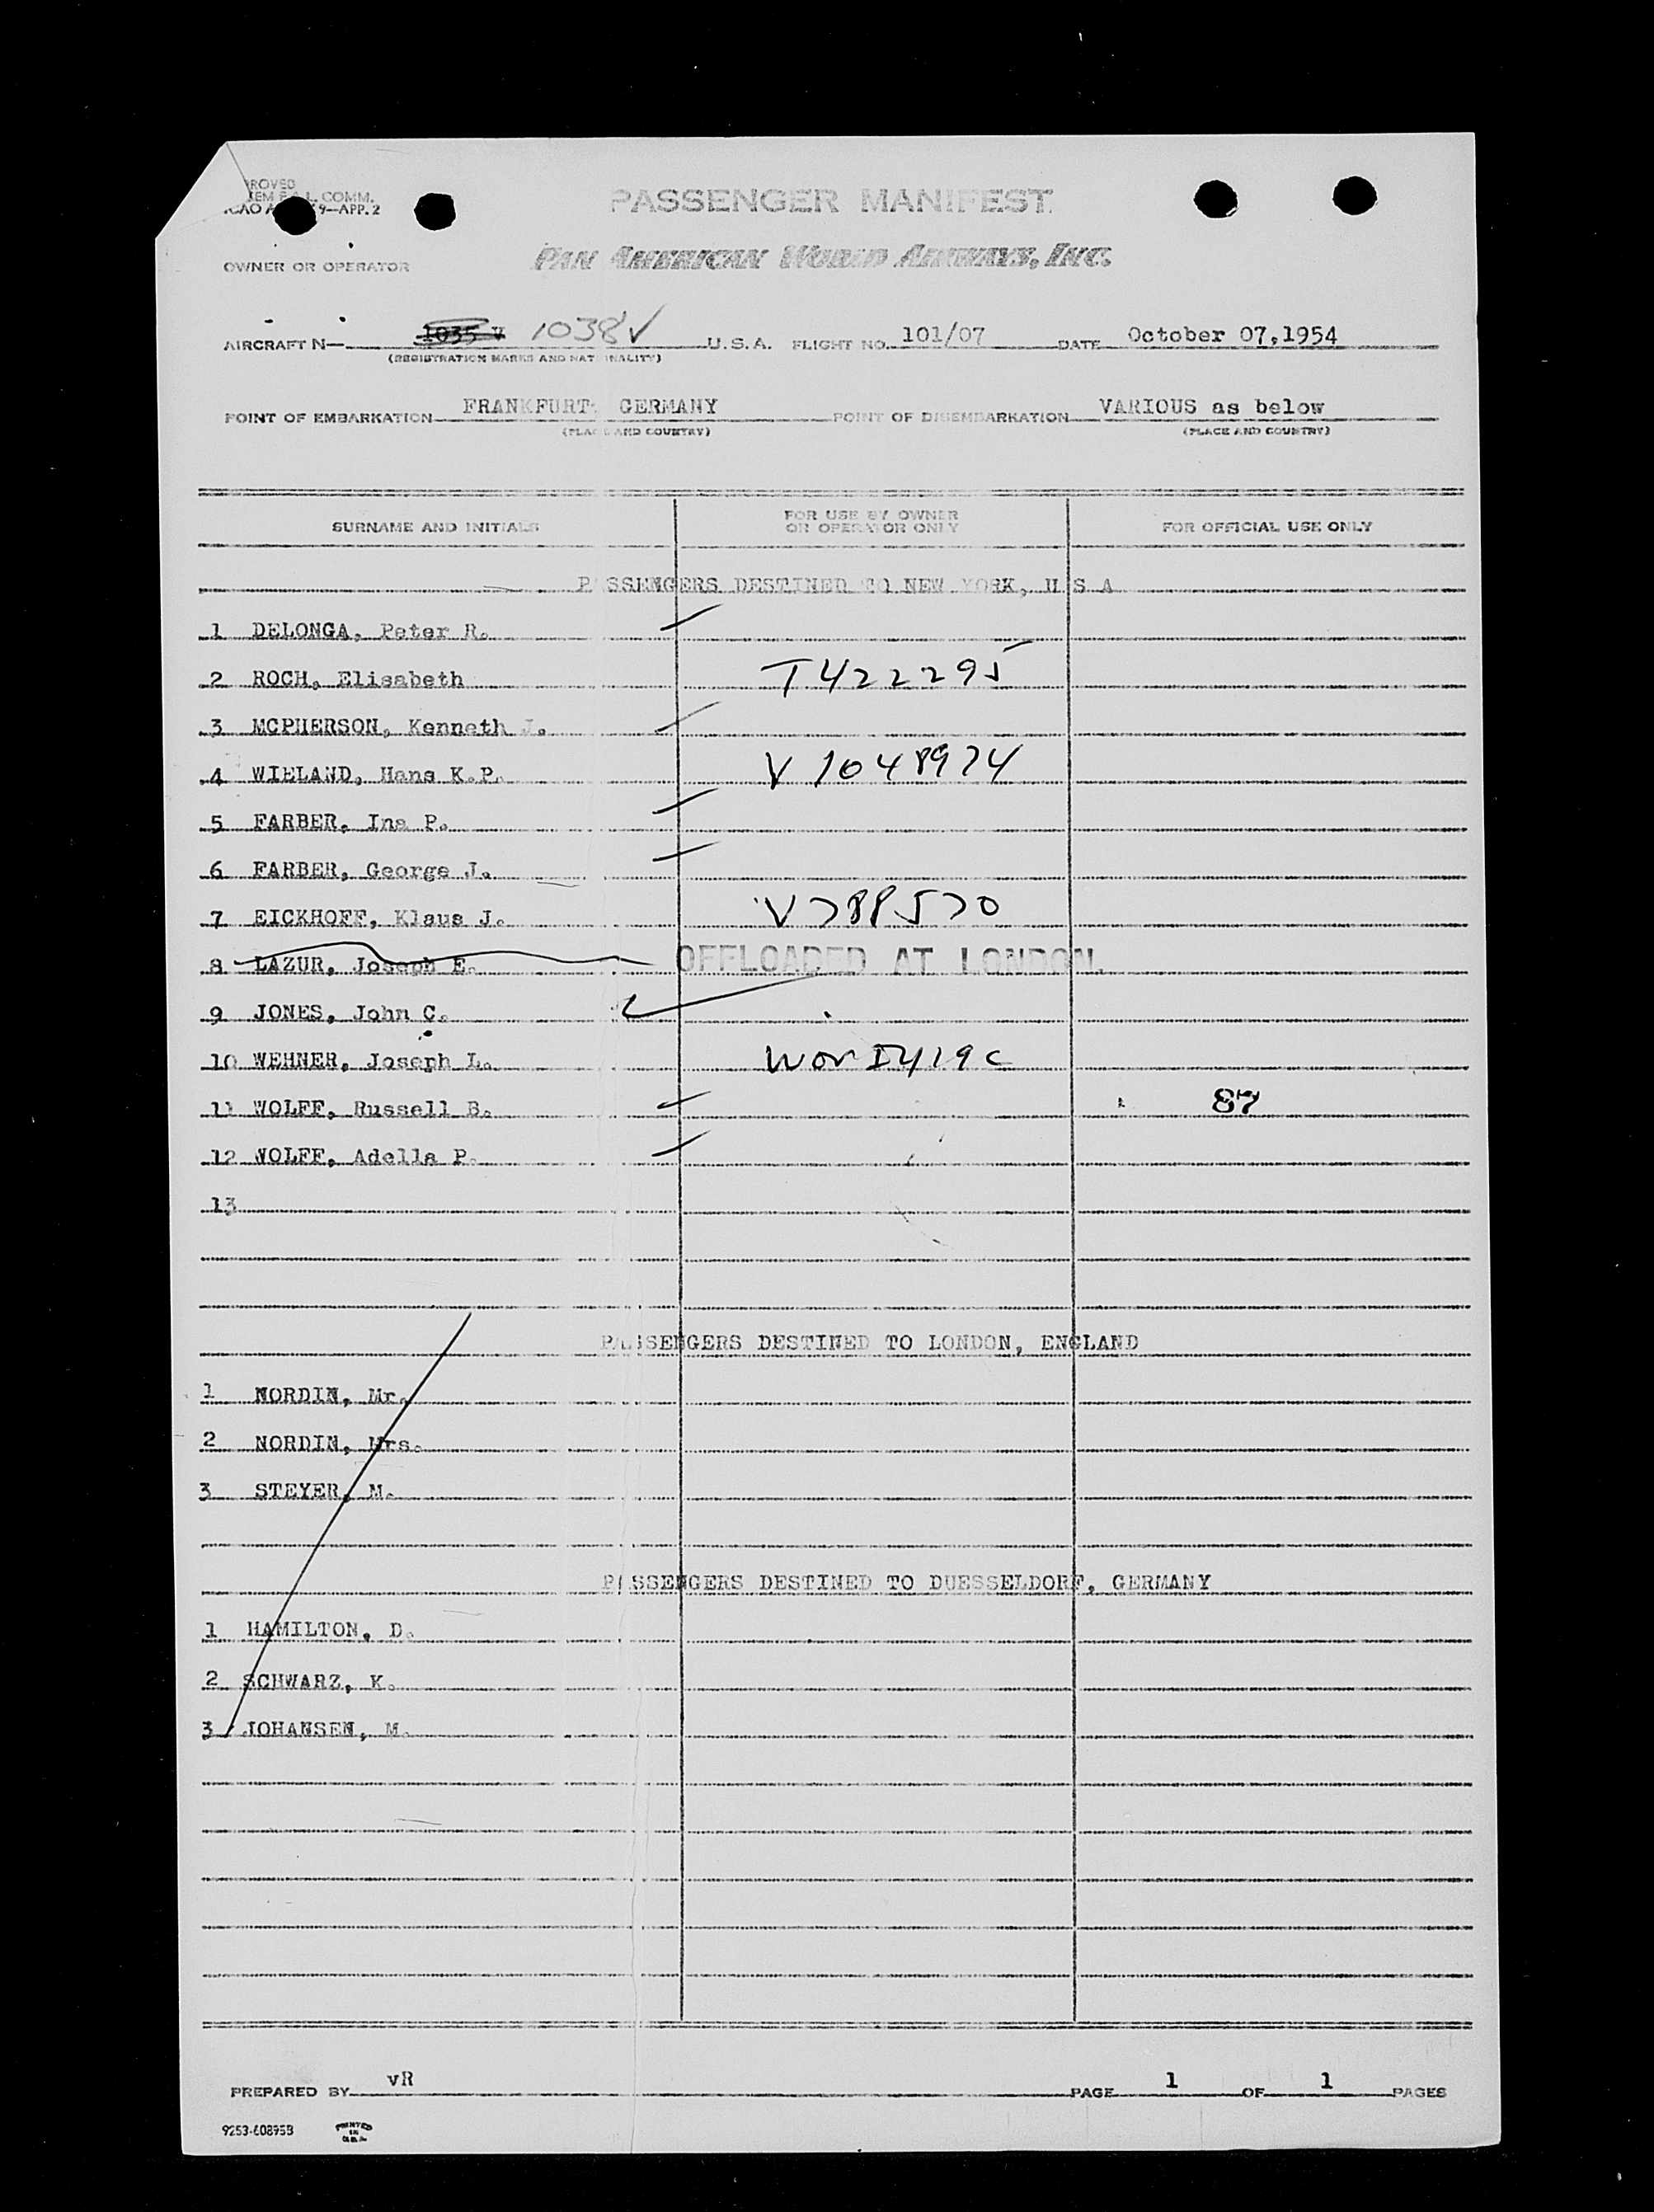 PROVED
EM F.A.L. COMM.
ICAO A 9—APP. 2
PASSENGER MANIFEST
OWNER OR OPERATOR PAN AMERICAN WORLD AIRWAYS, INC.
AIRCRAFT N— 1035 V 1038V U.S.A. FLIGHT NO. 101/07 DATE October 07,1954
(REGISTRATION MARKS AND NATIONALITY)
POINT OF EMBARKATION FRANKFURT, GERMANY POINT OF DISEMBARKATION VARIOUS as below
(PLACE AND COUNTRY) (PLACE AND COUNTRY)
SURNAME AND INITIALS FOR USE BY OWNER OR OPERATOR ONLY FOR OFFICIAL USE ONLY
PASSENGERS DESTINED TO NEW YORK, U S A
1 DELONGA, Peter R.
2 ROCH, Elisabeth T422295
3 MCPHERSON, Kenneth J.
4 WIELAND, Hans K.P. V1048974
5 FARBER, Ina P.
6 FARBER, George J.
7 EICKHOFF, Klaus J. V788570
8 LAZUR, Joseph E. OFFLOADED AT LONDON.
9 JONES, John C.
10 WEHNER, Joseph L.
11 WOLFF, Russell B. 87
12 WOLFF, Adella P.
13
PASSENGERS DESTINED TO LONDON, ENGLAND
1 NORDIN, Mr.
2 NORDIN, Mrs.
3 STEYER, M.
PASSENGERS DESTINED TO DUESSELDORF, GERMANY
1 HAMILTON, D.
2 SCHWARZ, K.
3 JOHANSEN, M.
PREPARED BY vR PAGE 1 OF 1 PAGES
9253-608958 PRINTED IN U.S.A.